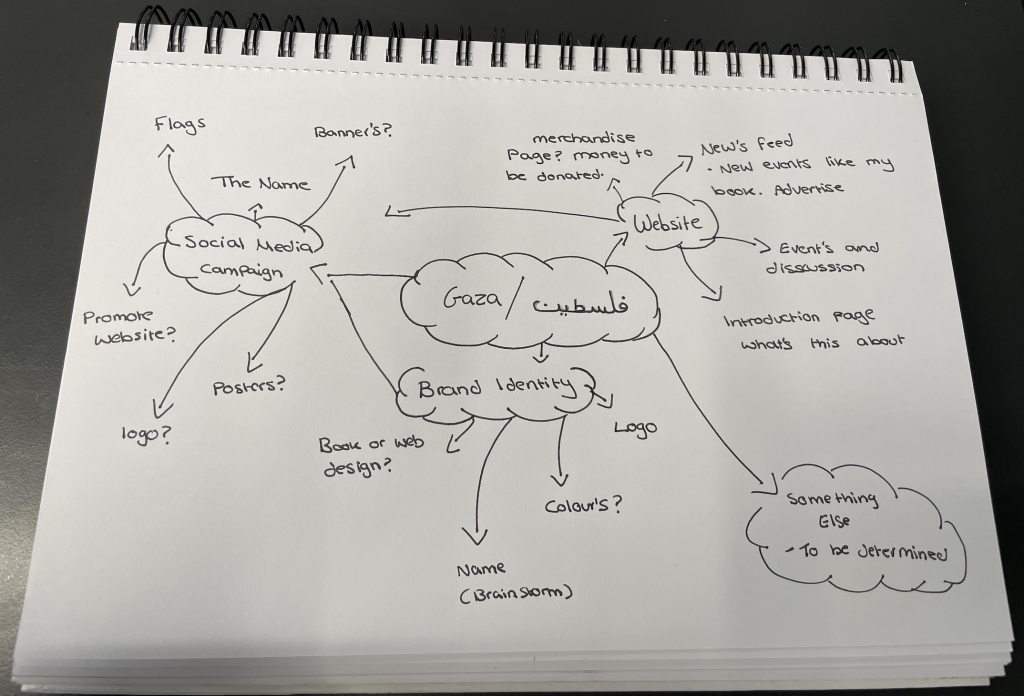 Flags
Banner's?
The Name
Social Media
Campaign
Promote
Website?
Posters?
logo?
merchandise
Page? money to
be donated.
New's feed
• New events like my
book. Advertise
Website
Event's and
disscussion
Introduction page
what's this about
Gaza / فلسطين
Brand Identity
Logo
Book or web
design?
Colour's?
Name
(Brainstorm)
Something
Else
- To be determined